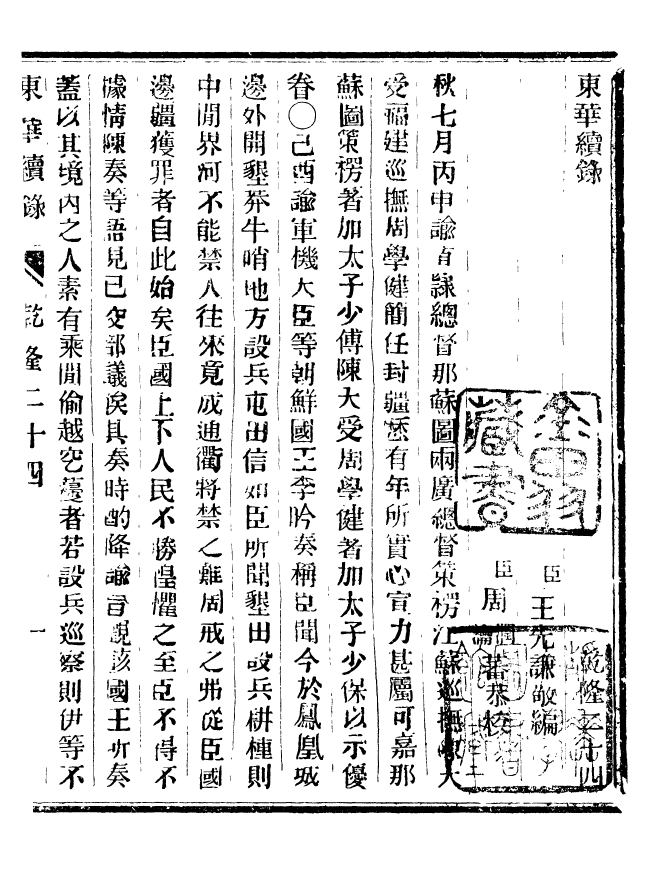 東華續錄
乾隆二十四
臣王先謙敬編
臣周潤蕃恭校
秋七月丙申諭直隸總督那蘇圖兩廣總督策楞江蘇巡撫陳大
受福建巡撫周學健簡任封疆歷有年所實心宣力甚屬可嘉那
蘇圖策楞著加太子少傅陳大受周學健著加太子少保以示優
眷〇己酉諭軍機大臣等朝鮮國王李昑奏稱臣聞今於鳳凰城
邊外開墾莽牛哨地方設兵屯田信如臣所聞墾田設兵耕種則
中閒界河不能禁人往來竟成通衢將禁之難周戒之弗從臣國
邊疆獲罪者自此始矣臣國上下人民不勝惶懼之至臣不得不
據情陳奏等語見已交部議俟具奏時酌降諭旨覩該國王所奏
蓋以其境內之人素有乘閒偷越空邊者若設兵巡察則伊等不
東華續錄 乾隆二十四 一